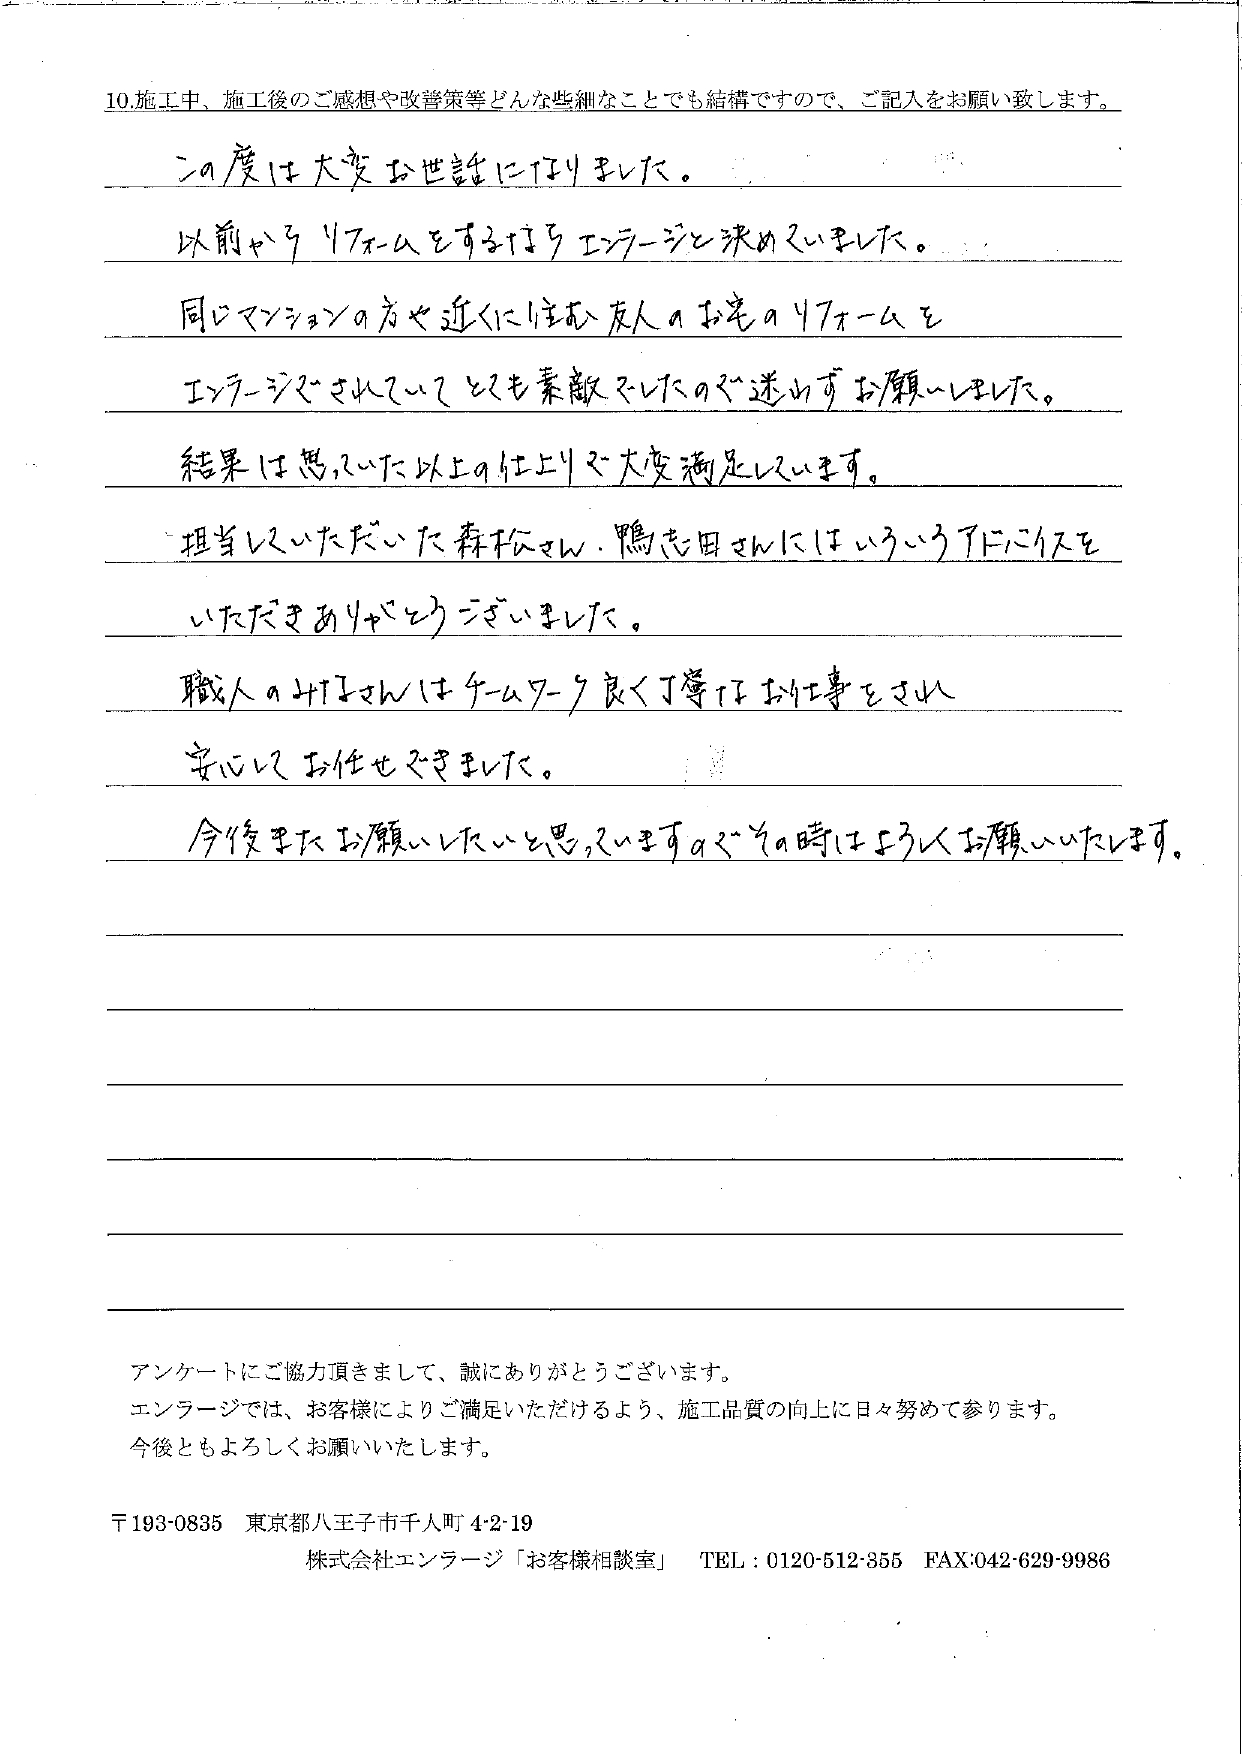 10.施工中、施工後のご感想や改善策等どんな些細なことでも結構ですので、ご記入をお願い致します。
この度は大変お世話になりました。
以前から リフォームをするなら エンラージと決めていました。
同じマンションの方や近くに住む友人のお宅のリフォームを
エンラージでされていて とても素敵でしたので迷わずお願いしました。
結果は思っていた以上の仕上りで大変満足しています。
担当していただいた森松さん・鴨志田さんにはいろいろアドバイスを
いただきありがとうございました。
職人のみなさんはチームワーク良く丁寧なお仕事をされ
安心してお任せできました。
今後またお願いしたいと思っていますのでその時はよろしくお願いいたします。
アンケートにご協力頂きまして、誠にありがとうございます。
エンラージでは、お客様によりご満足いただけるよう、施工品質の向上に日々努めて参ります。
今後ともよろしくお願いいたします。
〒193-0835 東京都八王子市千人町 4-2-19
株式会社エンラージ「お客様相談室」 TEL：0120-512-355 FAX:042-629-9986